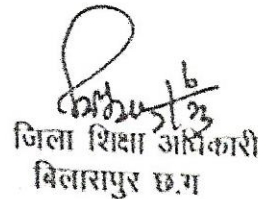 जिला शिक्षा अधिकारी
बिलासपुर छ.ग